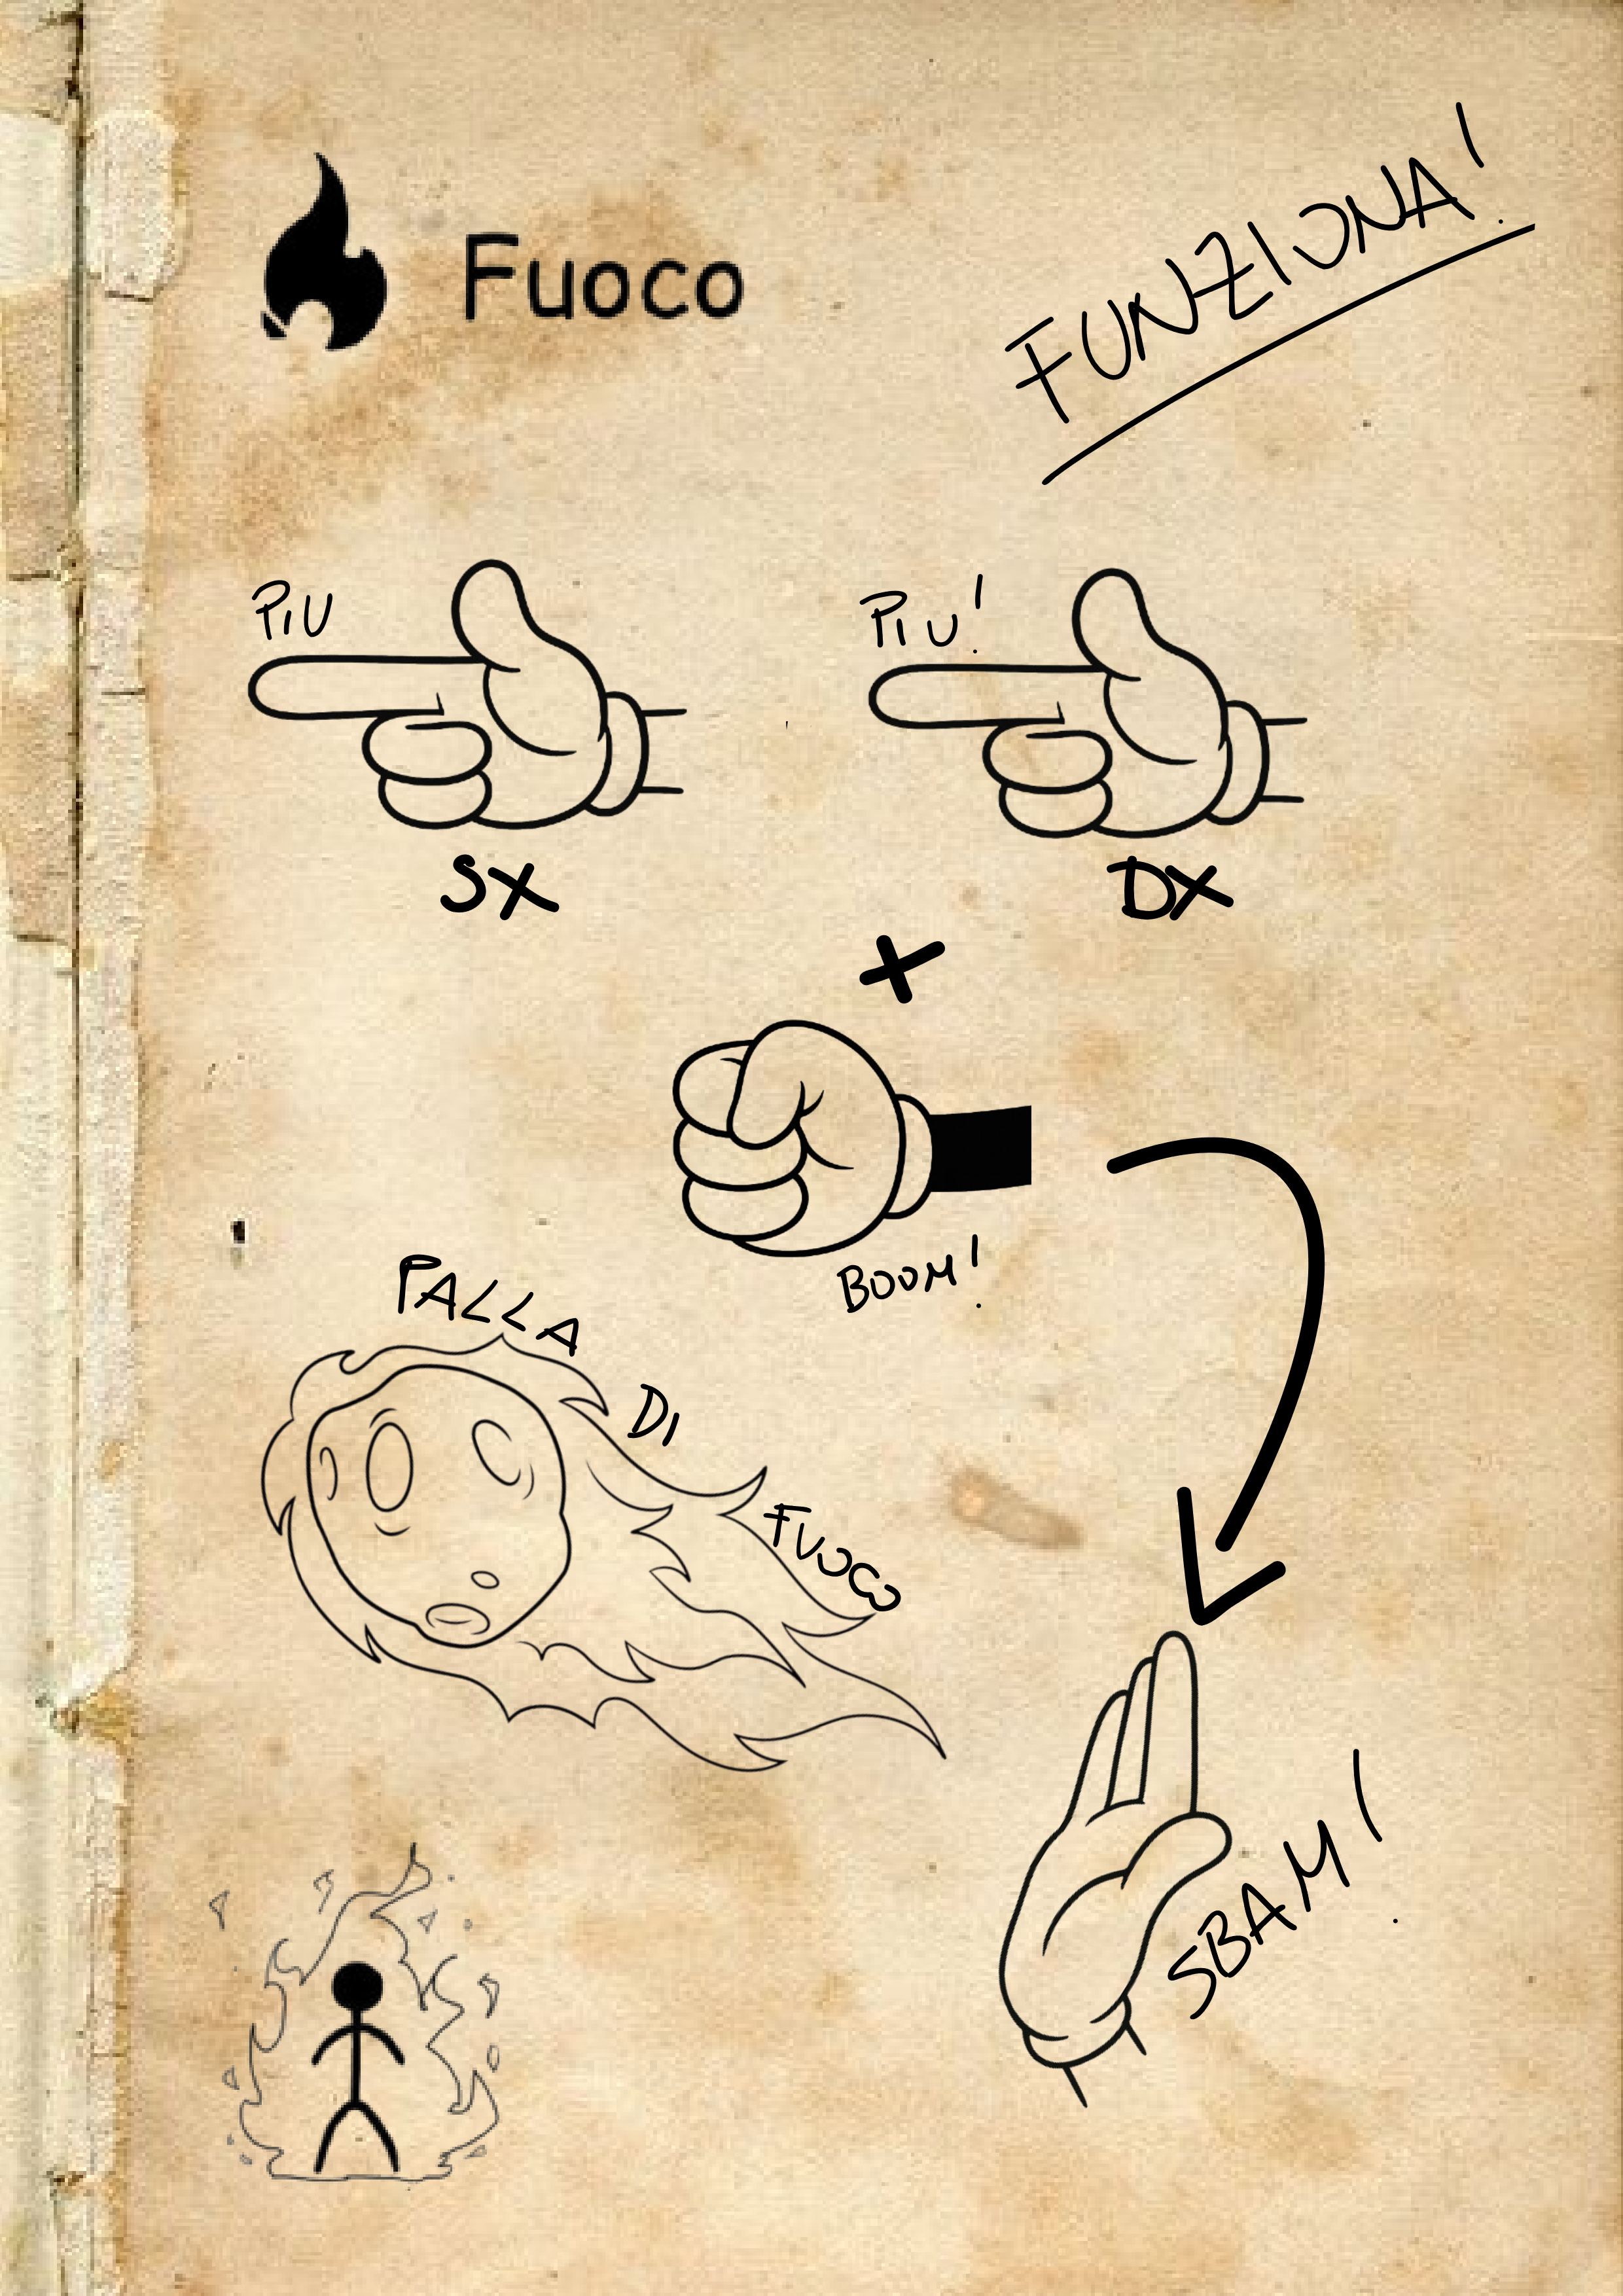 Fuoco
FUNZIONA!
PIU
PIU!
SX
DX
+
BOOM!
PALLA
DI
FUOCO
SBAM!